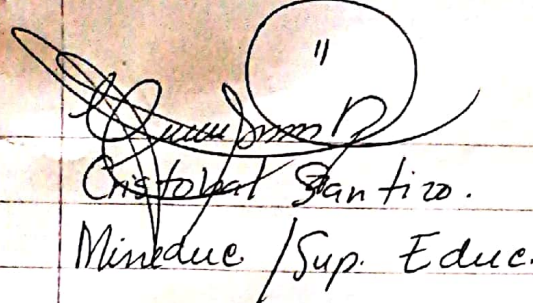 Cristobal Santizo.
Mineduc /Sup. Educ.